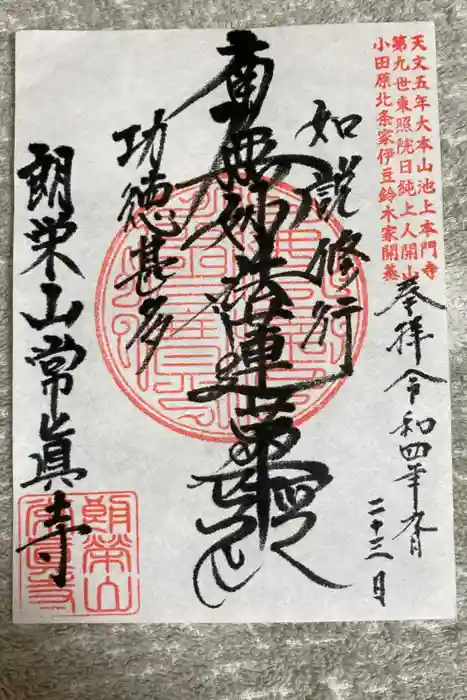 天文五年大本山池上本門寺
第九世東照院日純上人開山
小田原北条家伊豆鈴木家開基
奉拝 令和四年九月
二十三日
如説修行
南無妙法蓮華経
功徳甚多
朗栄山常眞寺
朗榮山
常眞寺